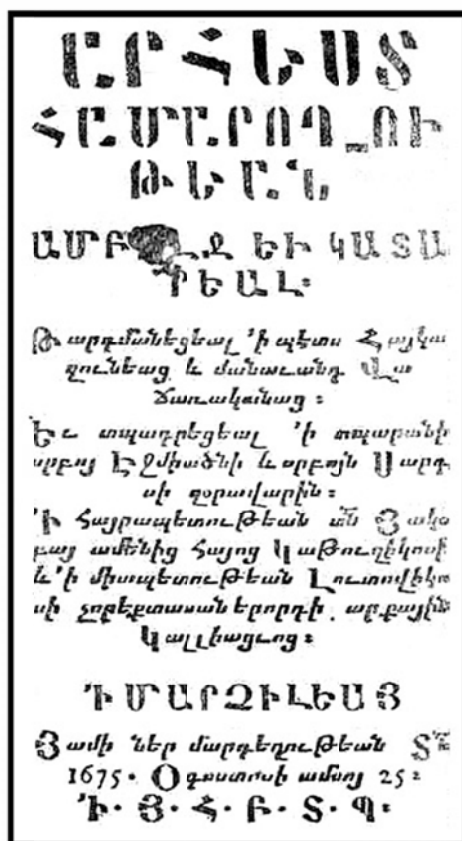 ԱՐՀԵՍՏ
ՀԱՄԱՐՈՂ_ՈՒ
ԹԵԱՆ
ԵՒ ԿԱՏԱ
ՐԵԱԼ։
Թարգմանեցեալ ՚ի պէտս Հայկա
զունեաց և մանաւանդ Վա
ճառականաց ։
Եւ տպագրեցեալ ՚ի տպարանի
սրբոյ Էջմիածնի և սրբոյն Սարգ
սի զօրավարին ։
՚Ի Հայրապետութեան տն Յակօ
բայ ամենից Հայոց Կաթուղիկոսի
և ՚ի միապետութեան Լուտովիկո
սի չորեքտասան երորդի . արքային
Կալլիացւոց ։
՚Ի ՄԱՐԶԻԼԵԱՅ
Յամի ներ մարդեղութեան Տն
1675. Օգոստոսի ամսոյ 25 ։
՚Ի. Յ. Հ. Բ. Տ. Պ։